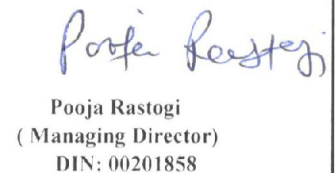 Pooja Rastogi
Pooja Rastogi
( Managing Director)
DIN: 00201858